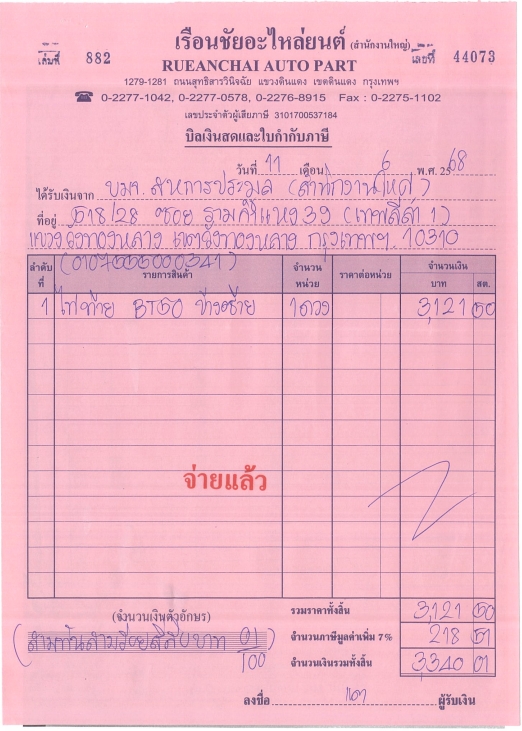 เล่มที่ 882
เรือนชัยอะไหล่ยนต์ (สำนักงานใหญ่)
RUEANCHAI AUTO PART
เลขที่ 44073
1279-1281 ถนนสุทธิสารวินิจฉัย แขวงดินแดง เขตดินแดง กรุงเทพฯ
☎ 0-2277-1042, 0-2277-0578, 0-2276-8915 Fax : 0-2275-1102
เลขประจำตัวผู้เสียภาษี 3101700537184
บิลเงินสดและใบกำกับภาษี
วันที่ 11 เดือน 6 พ.ศ. 2568
ได้รับเงินจาก บมจ. สหการประมูล (สำนักงานใหญ่)
ที่อยู่ 518/28 ซอย รามคำแหง 39 (เทพลีลา 1)
แขวงวังทองหลาง เขตวังทองหลาง กรุงเทพฯ 10310
(0107555000341)
ลำดับที่ รายการสินค้า จำนวนหน่วย ราคาต่อหน่วย จำนวนเงิน บาท สต.
1 ไฟท้าย BT50 ข้างซ้าย 1 ดวง 3,121 50
จ่ายแล้ว
รวมราคาทั้งสิ้น 3,121 50
(จำนวนเงินตัวอักษร)
จำนวนภาษีมูลค่าเพิ่ม 7% 218 51
(สามพันสามร้อยสี่สิบบาท 01/100)
จำนวนเงินรวมทั้งสิ้น 3,340 01
ลงชื่อ ผู้รับเงิน